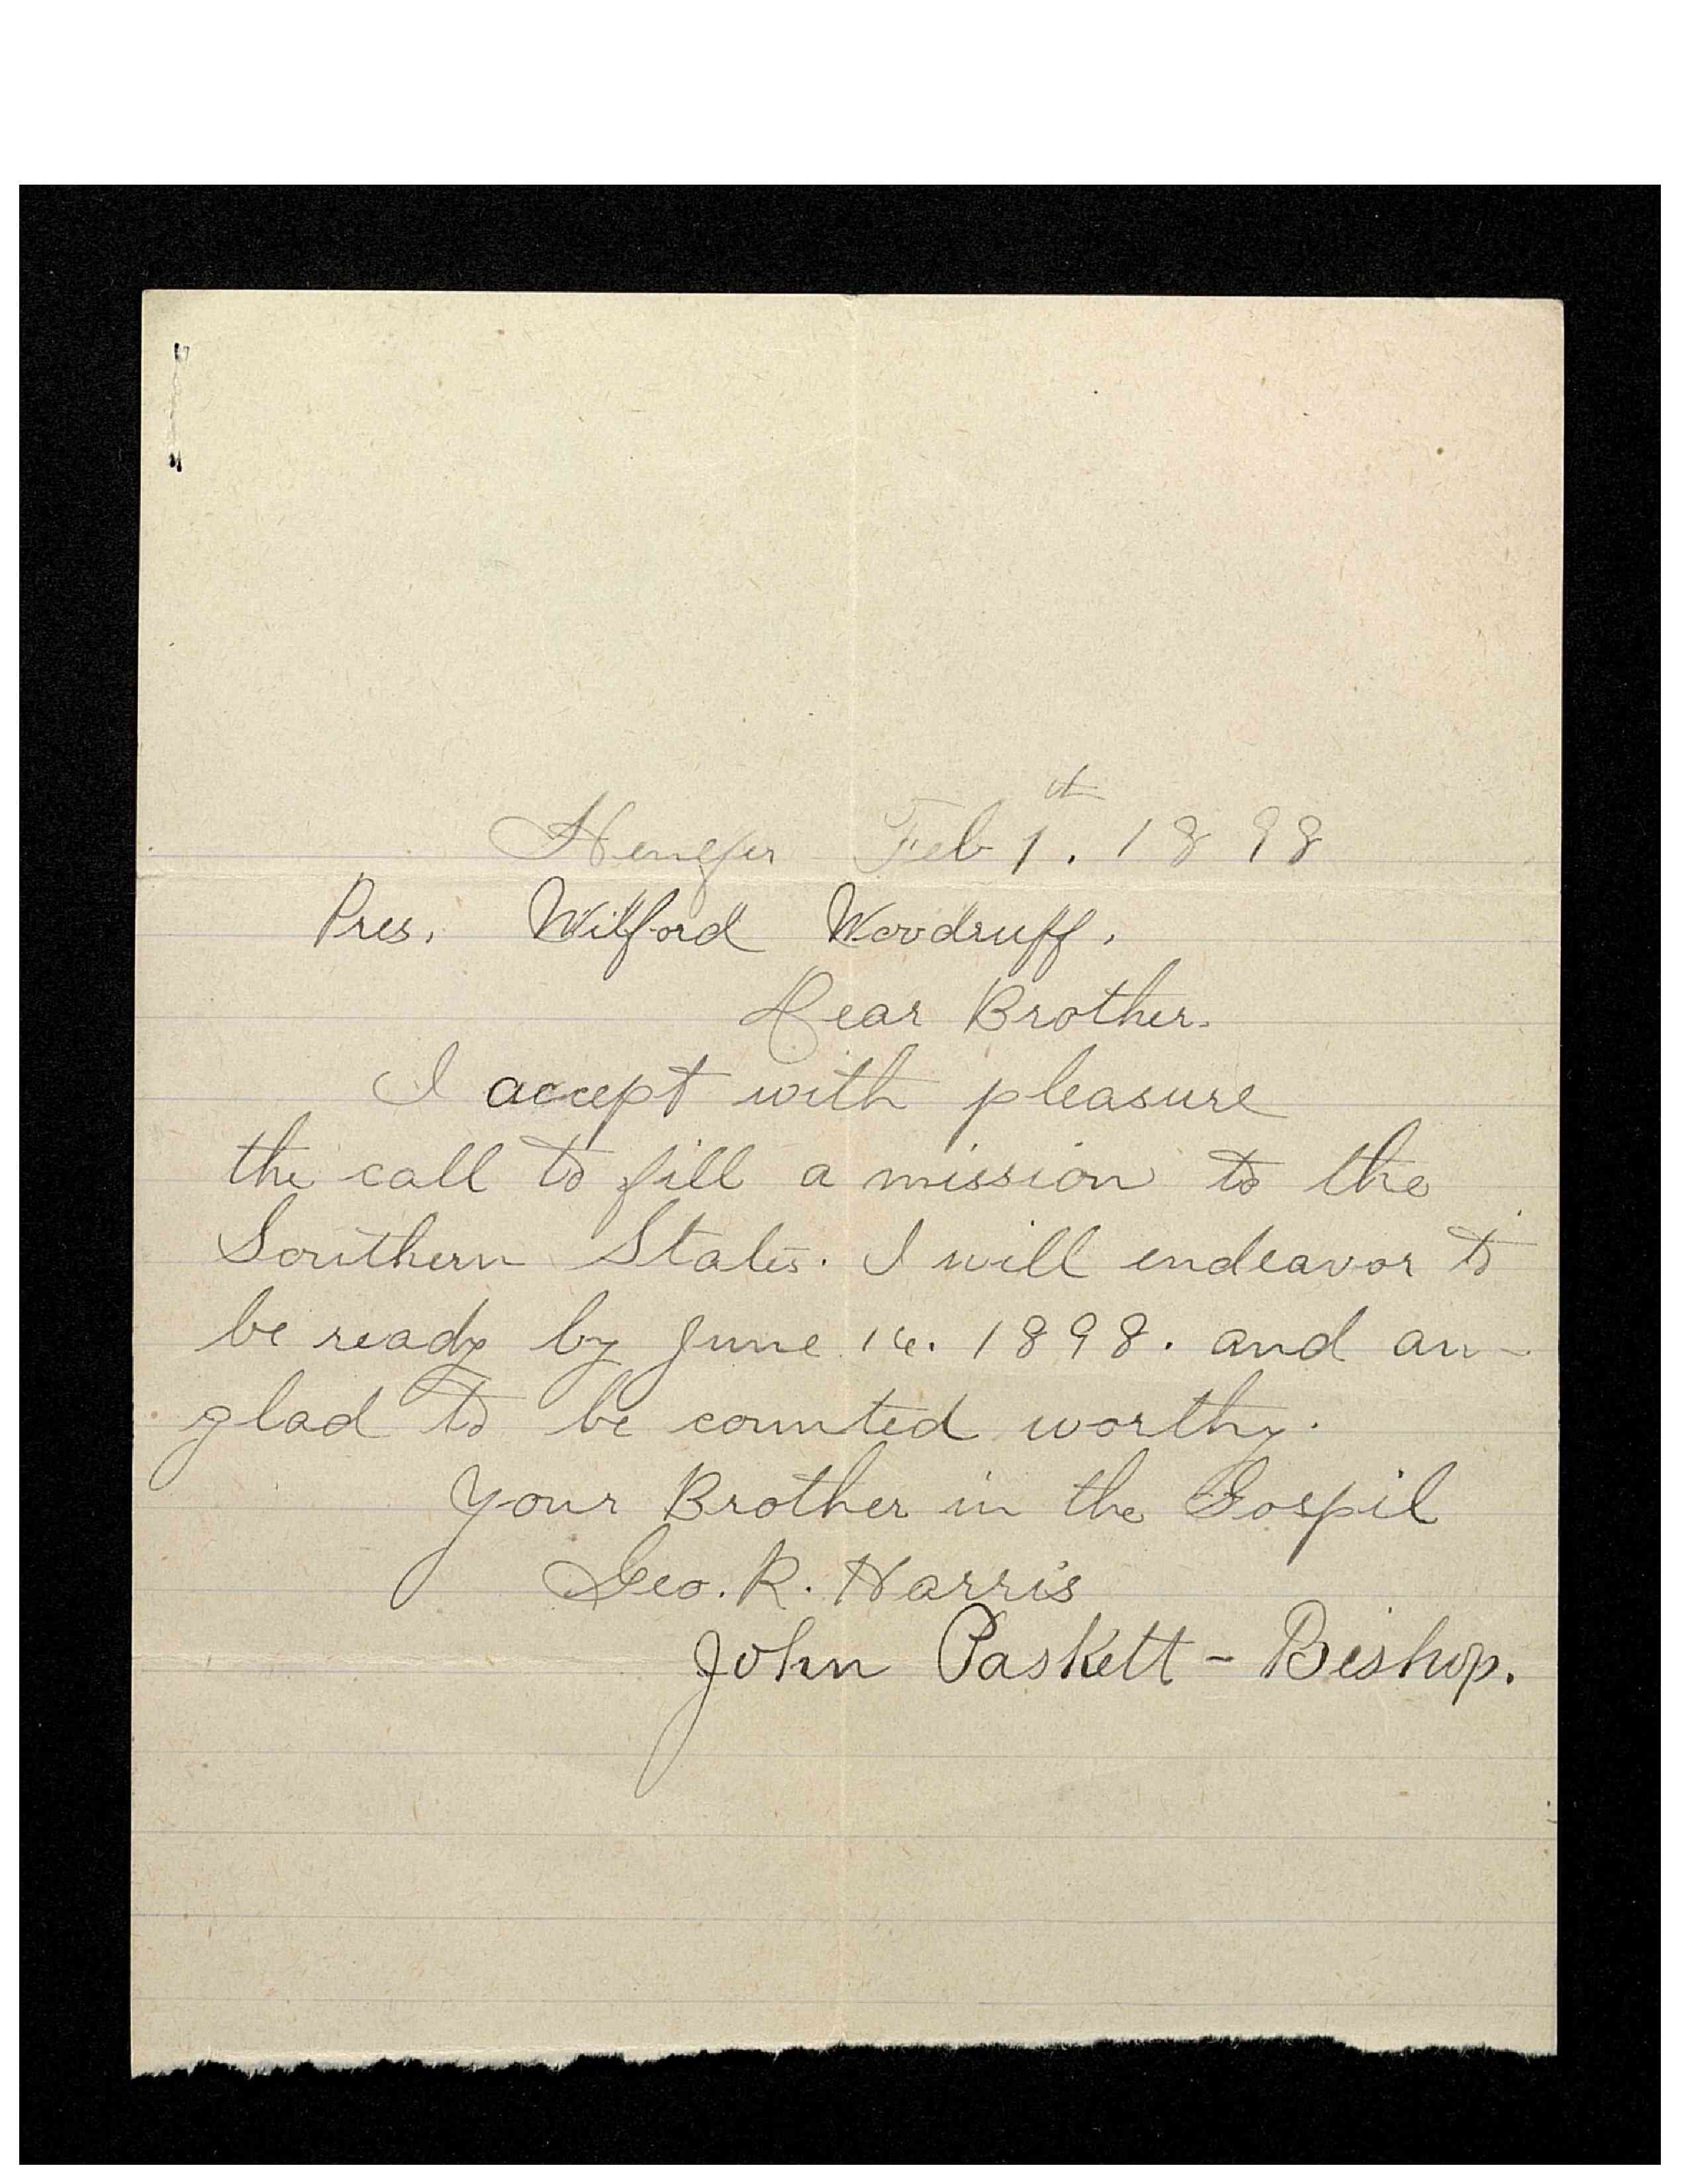 Henefer Feb 1th. 1898
Pres. Wilford Woodruff.
Dear Brother.
I accept with pleasure
the call to fill a mission to the
Southern States. I will endeavor to
be ready by June 16. 1898. and am
glad to be counted worthy.
Your Brother in the Gospil
Geo. R. Harris
John Paskett - Bishop.